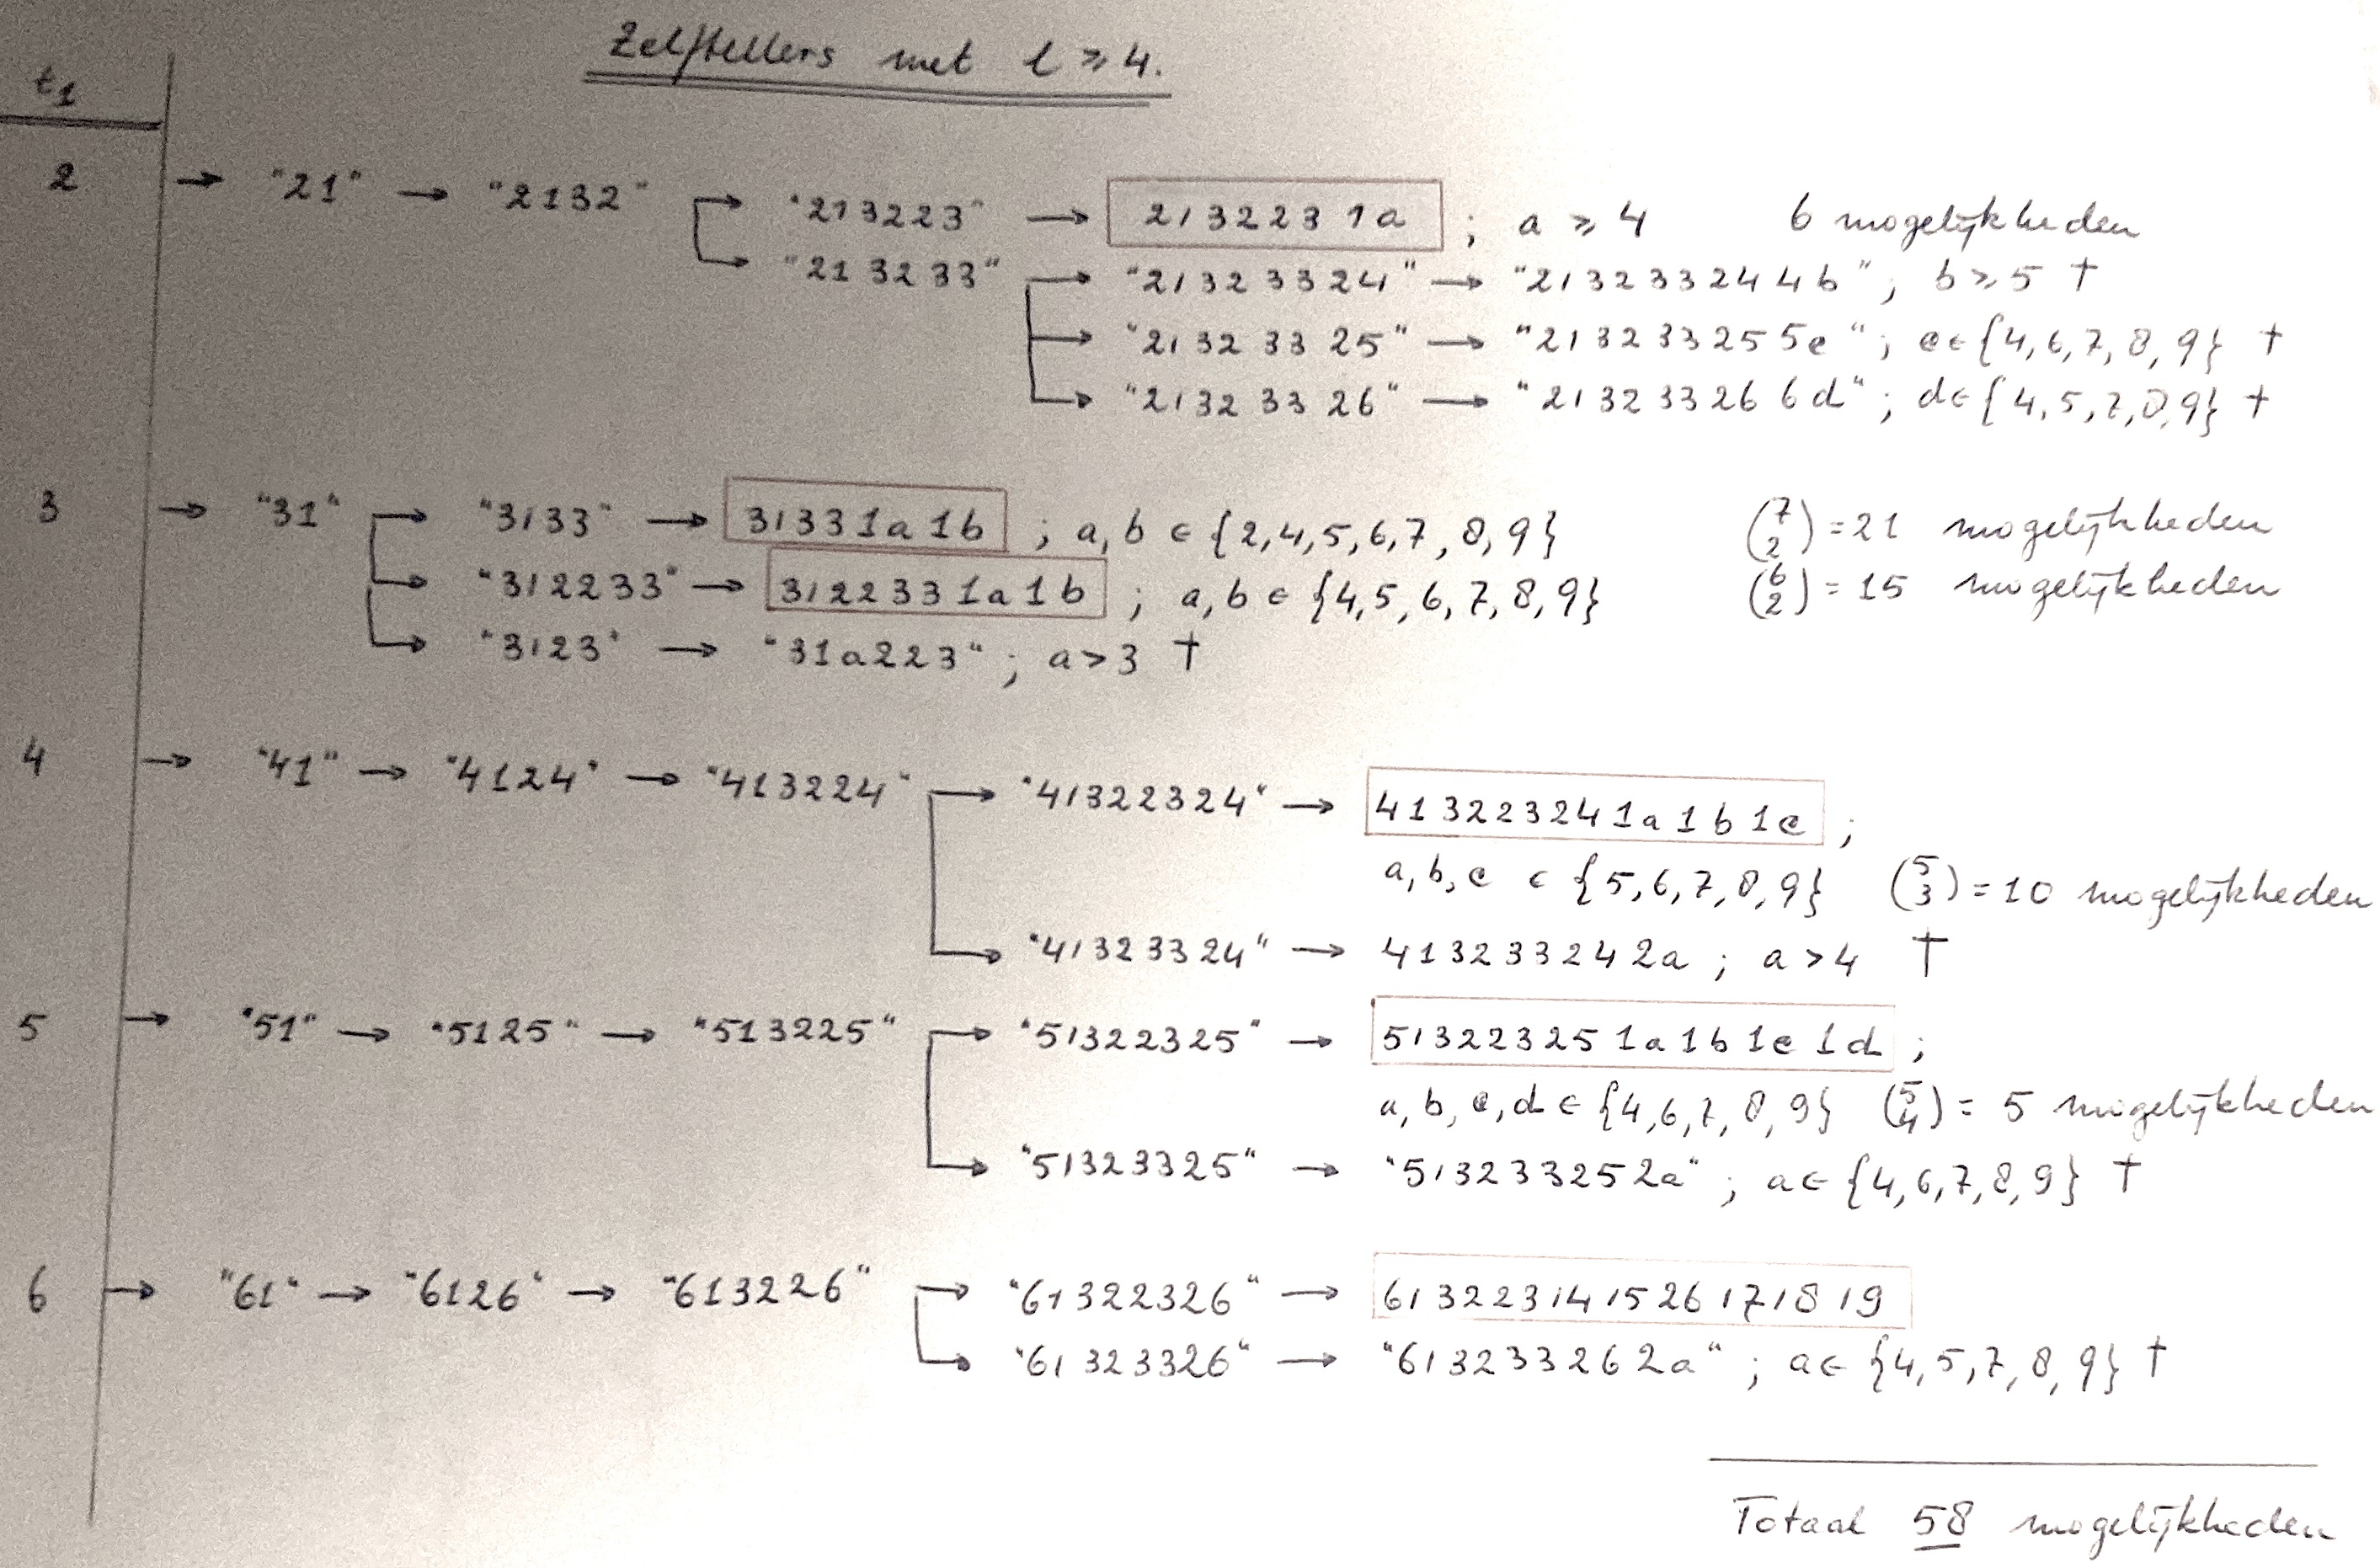 Zelftellers met l ≥ 4.
t₁
2 → "21" → "2132" → "213223" → 2132231a ; a ≥ 4 6 mogelijkheden
→ "213233" → "21323324" → "213233244b" ; b ≥ 5 †
→ "21323325" → "213233255c" ; c ∈ {4,6,7,8,9} †
→ "21323326" → "213233266d" ; d ∈ {4,5,7,8,9} †
3 → "31" → "3133" → 31331a1b ; a,b ∈ {2,4,5,6,7,8,9} (7 2) = 21 mogelijkheden
→ "312233" → 3122331a1b ; a,b ∈ {4,5,6,7,8,9} (6 2) = 15 mogelijkheden
→ "3123" → "31a223" ; a > 3 †
4 → "41" → "4124" → "413224" → "41322324" → 413223241a1b1c ;
a,b,c ∈ {5,6,7,8,9} (5 3) = 10 mogelijkheden
→ "41323324" → 413233242a ; a > 4 †
5 → "51" → "5125" → "513225" → "51322325" → 513223251a1b1c1d ;
a,b,c,d ∈ {4,6,7,8,9} (5 4) = 5 mogelijkheden
→ "51323325" → "513233252a" ; a ∈ {4,6,7,8,9} †
6 → "61" → "6126" → "613226" → "61322326" → 613223141526171819
→ "61323326" → "613233262a" ; a ∈ {4,5,7,8,9} †
Totaal 58 mogelijkheden